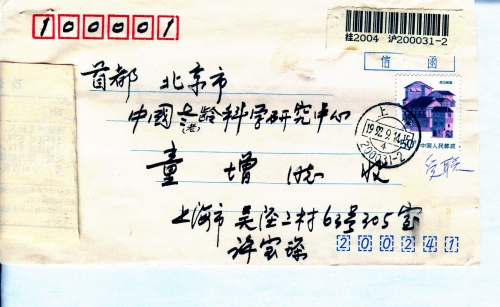 100001
挂2004 沪200031-2
信 函
首都 北京市
中國老龄科学研究中心
(老)
童 增 同志 收
上
1992.9.14.15
4
200031-2
中国人民邮政
上海市 吴泾二村63号305室
许宝琛
200241